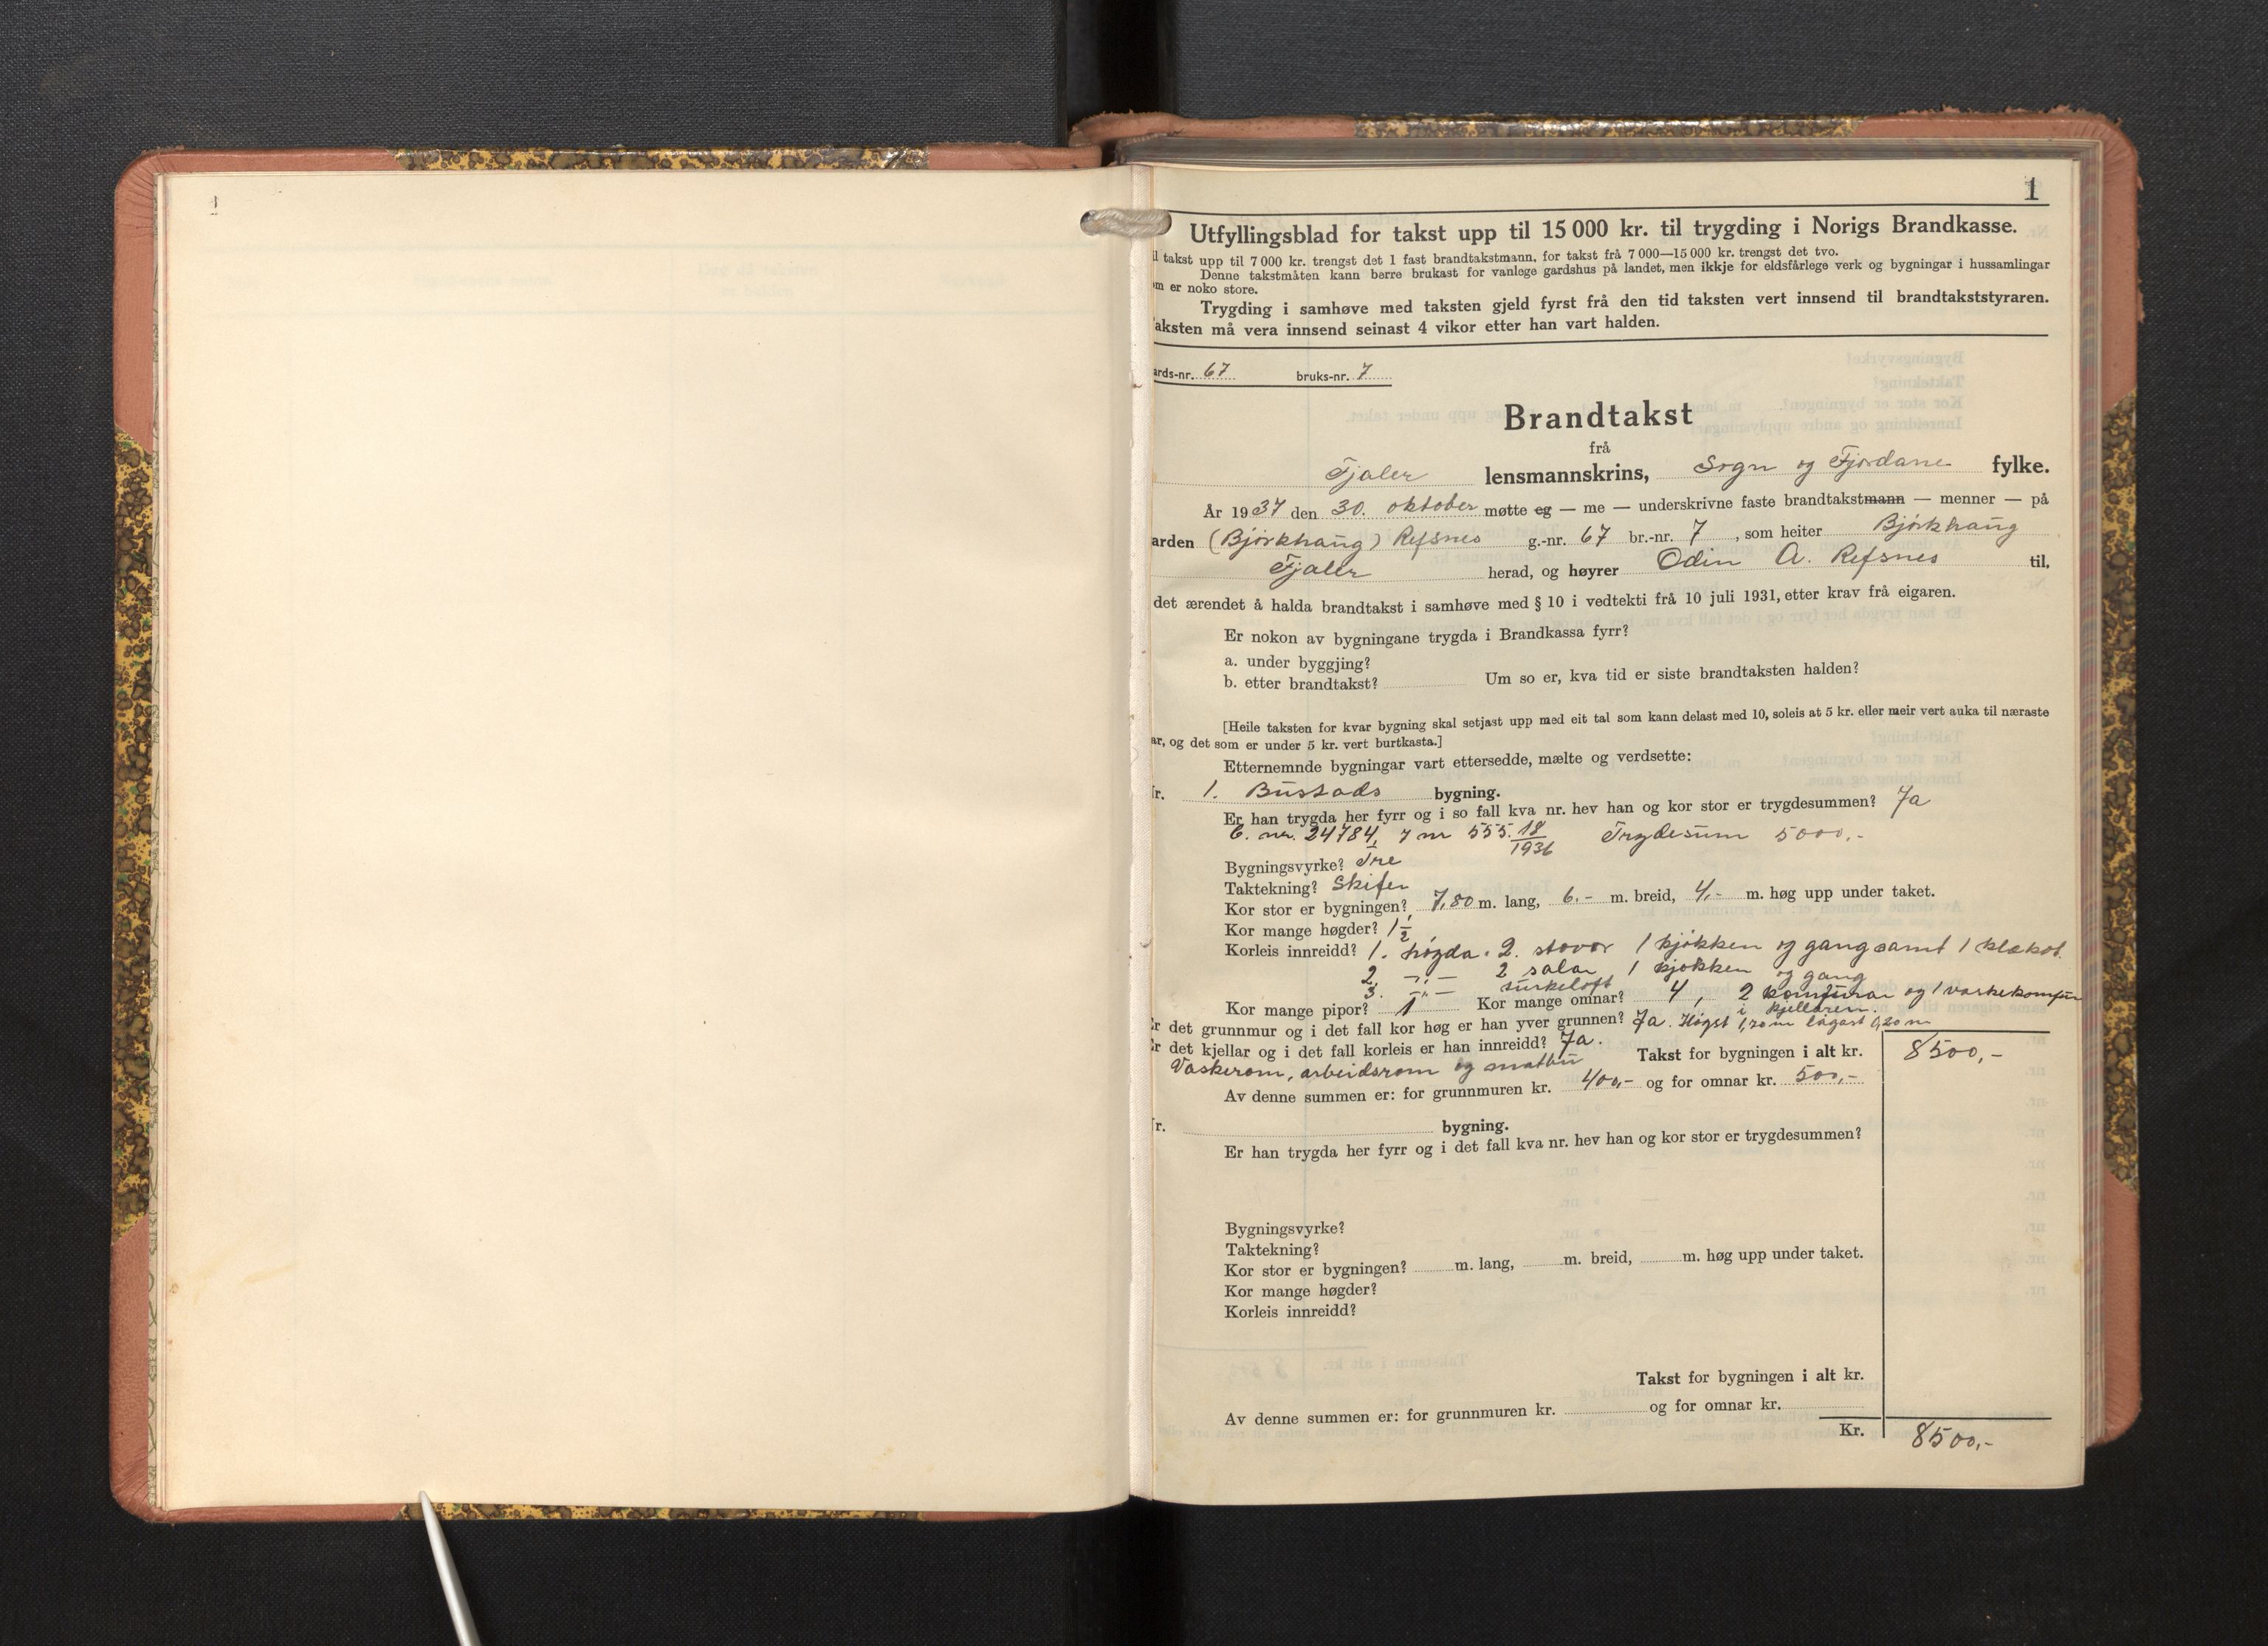 1
Utfyllingsblad for takst upp til 15 000 kr. til trygding i Norigs Brandkasse.
l takst upp til 7 000 kr. trengst det 1 fast brandtakstmann, for takst frå 7 000—15 000 kr. trengst det tvo.
Denne takstmåten kann berre brukast for vanlege gardshus på landet, men ikkje for eldsfårlege verk og bygningar i hussamlingar
m er noko store.
Trygding i samhøve med taksten gjeld fyrst frå den tid taksten vert innsend til brandtakststyraren.
aksten må vera innsend seinast 4 vikor etter han vart halden.
ards-nr. 67 bruks-nr. 7
Brandtakst
frå
Fjaler lensmannskrins, Sogn og Fjordane fylke.
År 1937 den 30. oktober møtte eg — me — underskrivne faste brandtakstmann — menner — på
arden (Bjørkhaug) Refsnes g.-nr. 67 br.-nr. 7 , som heiter Bjørkhaug
Fjaler herad, og høyrer Odin A. Refsnes til,
det ærendet å halda brandtakst i samhøve med § 10 i vedtekti frå 10 juli 1931, etter krav frå eigaren.
Er nokon av bygningane trygda i Brandkassa fyrr?
a. under byggjing?
b. etter brandtakst? Um so er, kva tid er siste brandtaksten halden?
[Heile taksten for kvar bygning skal setjast upp med eit tal som kann delast med 10, soleis at 5 kr. eller meir vert auka til næraste
ar, og det som er under 5 kr. vert burtkasta.]
Etternemnde bygningar vart ettersedde, mælte og verdsette:
r. 1. Bustads bygning.
Er han trygda her fyrr og i so fall kva nr. hev han og kor stor er trygdesummen? Ja
nr. 24784, nr 555. 18/1936 Trygdesum 5000,-
Bygningsvyrke? Tre
Taktekning? Skifer
Kor stor er bygningen? 7,80 m. lang, 6.- m. breid, 4,- m. høg upp under taket.
Kor mange høgder? 1 1/2
Korleis innreidd? 1. høgda. 2. stover 1 kjøkken og gang samt 1 klækot.
2. -"- 2 salar 1 kjøkken og gang
3. -"- turkeloft
Kor mange pipor? 1 Kor mange omnar? 4, 2 komfurar og 1 vaskekomfur
i kjellaren.
r det grunnmur og i det fall kor høg er han yver grunnen? Ja. Høgst 1,70 m lågast 0,20 m
r det kjellar og i det fall korleis er han innreidd? Ja.
Vaskerom, arbeidsrom og matbu Takst for bygningen i alt kr. 8500,-
Av denne summen er: for grunnmuren kr. 400,- og for omnar kr. 500,-
r. bygning.
Er han trygda her fyrr og i det fall kva nr. hev han og kor stor er trygdesummen?
Bygningsvyrke?
Taktekning?
Kor stor er bygningen? m. lang, m. breid, m. høg upp under taket.
Kor mange høgder?
Korleis innreidd?
Takst for bygningen i alt kr.
Av denne summen er: for grunnmuren kr. og for omnar kr.
Kr. 8500,-